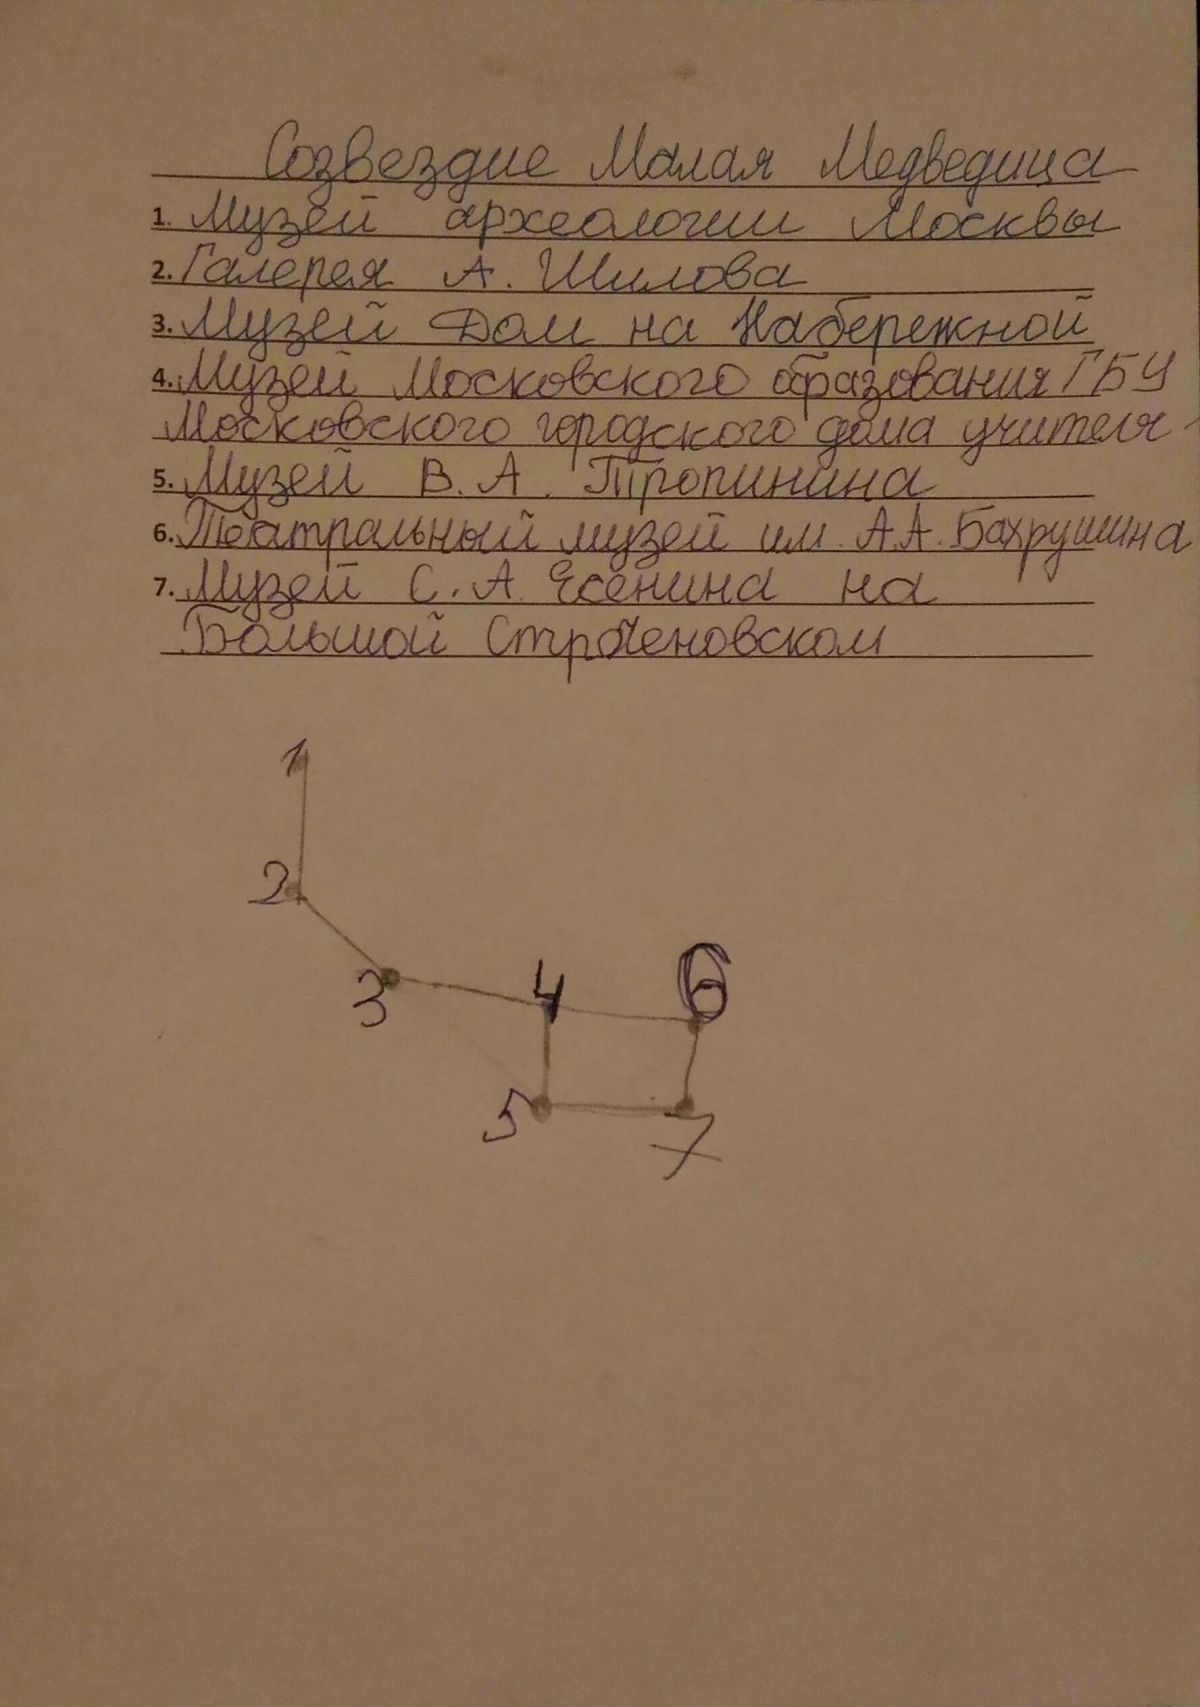 Созвездие Малая Медведица
1. Музей археологии Москвы
2. Галерея А. Шилова
3. Музей Дом на Набережной
4. Музей Московского образования ГБУ
Московского городского дома учителя
5. Музей В. А. Тропинина
6. Театральный музей им. А.А. Бахрушина
7. Музей С. А. Есенина на
Большой Строченовском
1
2
3
4
6
5
7